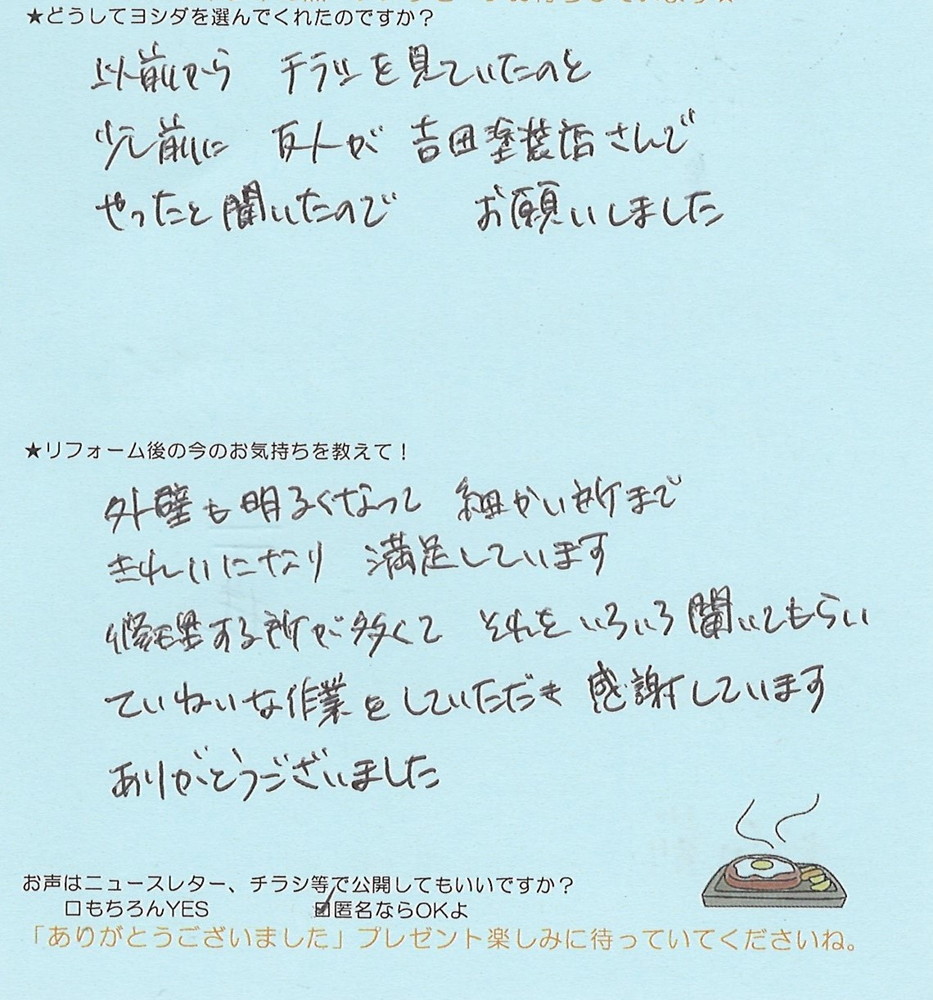 ★どうしてヨシダを選んでくれたのですか？
以前から チラシを見ていたのと
少し前に 友人が 吉田塗装店さんで
やったと聞いたので お願いしました
★リフォーム後の今のお気持ちを教えて！
外壁も明るくなって 細かい所まで
きれいになり 満足しています
修理する所が多くて それをいろいろ聞いてもらい
ていねいな作業をしていただき 感謝しています
ありがとうございました
お声はニュースレター、チラシ等で公開してもいいですか？
□もちろんYES ☑匿名ならOKよ
「ありがとうございました」プレゼント楽しみに待っていてくださいね。